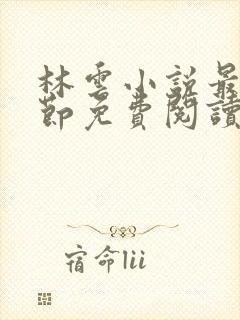 林雲小說最
節免費閱讀
宿命lii